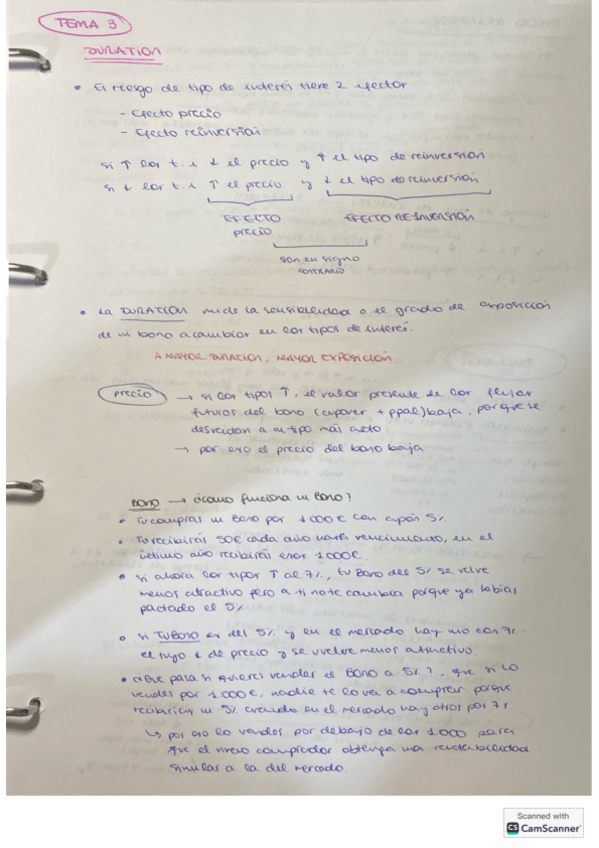 TEMA 3
DURATION
• El riesgo de tipo de interés tiene 2 efectos
- Efecto precio
- Efecto reinversión
si ↑ los t. i ↓ el precio y ↑ el tipo de reinversión
si ↓ los t. i ↑ el precio y ↓ el tipo de reinversión
EFECTO precio EFECTO REINVERSIÓN
son en signo
CONTRARIO
• La DURATION mide la sensibilidad o el grado de exposición
de un bono a cambios en los tipos de interés.
A MAYOR DURATION, MAYOR EXPOSICIÓN
PRECIO → si los tipos ↑, el valor presente de los flujos
futuros del bono (cupones + ppal) baja, porque se
descuentan a un tipo más alto
→ por eso el precio del bono baja
BONO → ¿Cómo funciona un Bono?
• Tu compras un Bono por 1000€ con cupón 5%
• Tu recibirás 50€ cada año hasta vencimiento, en el
último año recibirás esos 1000€.
• si ahora los tipos ↑ al 7%, tu Bono del 5% se vuelve
menos atractivo pero a ti no te cambia porque ya lo habías
pactado el 5%
• si TU BONO es del 5% y en el mercado hay uno con 7%
el tuyo ↓ de precio y se vuelve menos atractivo
• ¿Que pasa si quieres vender el BONO a 5%?, que si lo
vendes por 1000€, nadie te lo va a comprar porque
recibirían un 5% cuando en el mercado hay otros por 7%
↳ por eso lo vendes por debajo de los 1000 para
que el nuevo comprador obtenga una rentabilidad
similar a la del mercado.
Scanned with
CS CamScanner